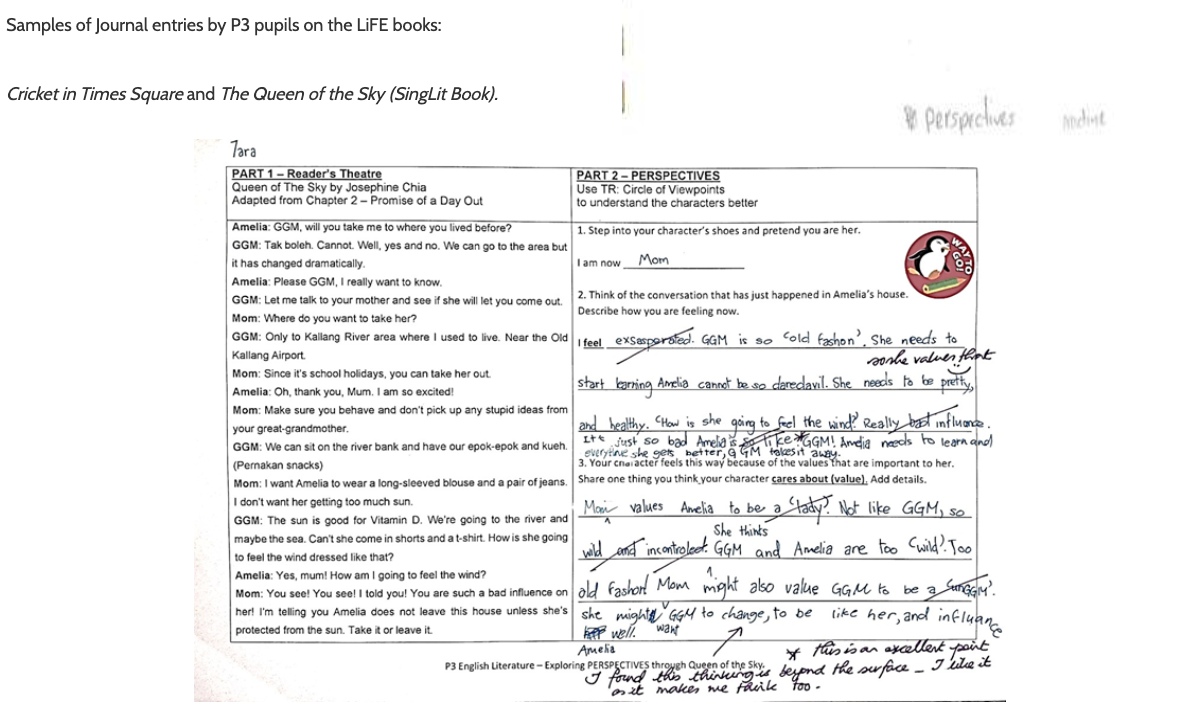 Samples of Journal entries by P3 pupils on the LiFE books:
Cricket in Times Square and The Queen of the Sky (SingLit Book).
Perspectives
Tara
PART 1 – Reader's Theatre
Queen of The Sky by Josephine Chia
Adapted from Chapter 2 – Promise of a Day Out
Amelia: GGM, will you take me to where you lived before?
GGM: Tak boleh. Cannot. Well, yes and no. We can go to the area but
it has changed dramatically.
Amelia: Please GGM, I really want to know.
GGM: Let me talk to your mother and see if she will let you come out.
Mom: Where do you want to take her?
GGM: Only to Kallang River area where I used to live. Near the Old
Kallang Airport.
Mom: Since it's school holidays, you can take her out.
Amelia: Oh, thank you, Mum. I am so excited!
Mom: Make sure you behave and don't pick up any stupid ideas from
your great-grandmother.
GGM: We can sit on the river bank and have our epok-epok and kueh.
(Pernakan snacks)
Mom: I want Amelia to wear a long-sleeved blouse and a pair of jeans.
I don't want her getting too much sun.
GGM: The sun is good for Vitamin D. We're going to the river and
maybe the sea. Can't she come in shorts and a t-shirt. How is she going
to feel the wind dressed like that?
Amelia: Yes, mum! How am I going to feel the wind?
Mom: You see! You see! I told you! You are such a bad influence on
her! I'm telling you Amelia does not leave this house unless she's
protected from the sun. Take it or leave it.
PART 2 – PERSPECTIVES
Use TR: Circle of Viewpoints
to understand the characters better
1. Step into your character's shoes and pretend you are her.
I am now Mom
WAY TO GO!
2. Think of the conversation that has just happened in Amelia's house.
Describe how you are feeling now.
I feel exsasperated. GGM is so 'old fashon'. She needs to
so she values that
start learning Amelia cannot be so daredavil. She needs to be pretty,
and healthy. "How is she going to feel the wind?" Really bad influance.
It's just so bad Amelia is so like GGM! Amelia needs to learn and
everytime she gets better, GGM takes it away.
3. Your character feels this way because of the values that are important to her.
Share one thing you think your character cares about (value). Add details.
Mom values Amelia to be a 'lady'. Not like GGM, so
She thinks
wild and incontroleet. GGM and Amelia are too 'wild'. Too
old fashon! Mom might also value GGM to be a
she might want GGM to change, to be like her, and influance
Amelia well.
* this is an excellent point
P3 English Literature – Exploring PERSPECTIVES through Queen of the Sky.
I found this thinking is beyond the surface – I like it
as it makes me think too.